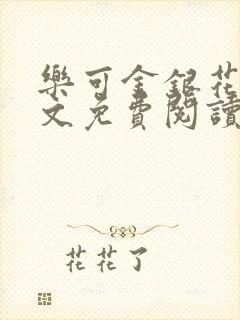 樂可金銀花
文免費閱讀
花花了